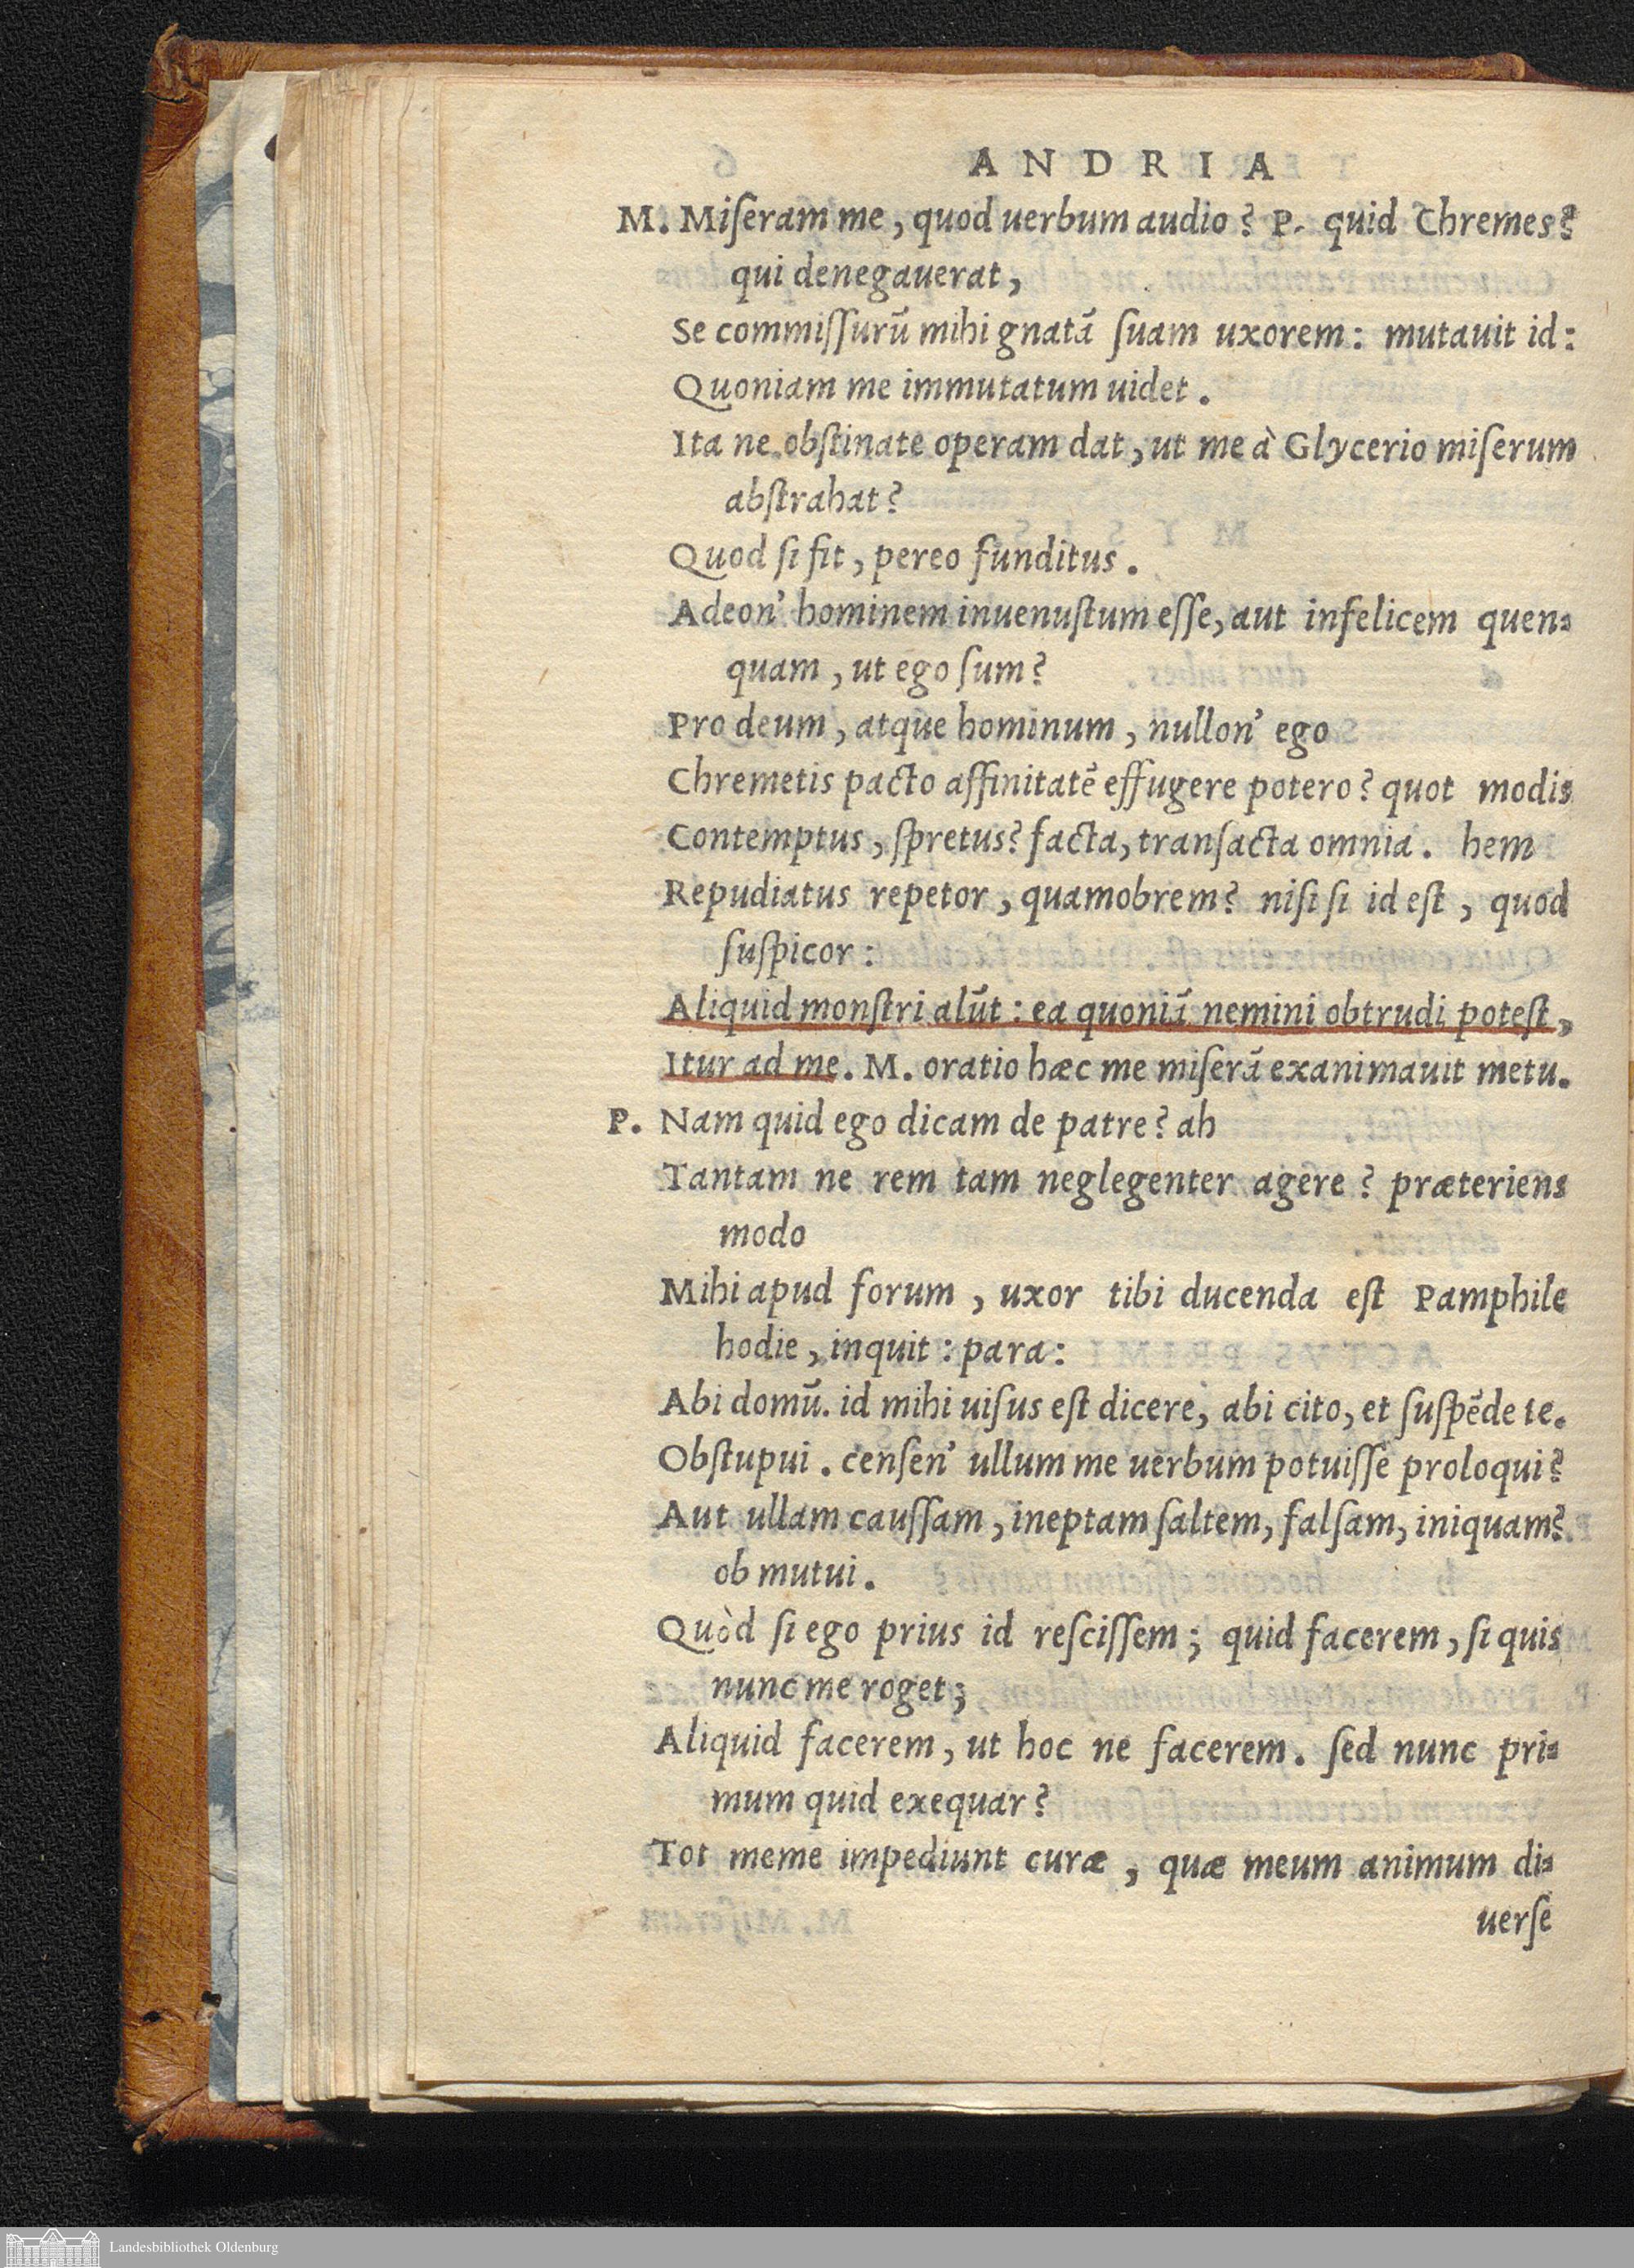 ANDRIA
M. Miſeram me, quod uerbum audio? P. quid Chremes?
qui denegauerat,
Se commiſſurū mihi gnatā ſuam uxorem: mutauit id:
Quoniam me immutatum uidet.
Ita ne obſtinate operam dat, ut me à Glycerio miſerum
abſtrahat?
Quod ſi fit, pereo funditus.
Adeon' hominem inuenuſtum eſſe, aut infelicem quen-
quam, ut ego ſum?
Pro deum, atque hominum, nullon' ego
Chremetis pacto affinitatē effugere potero? quot modis
Contemptus, ſpretus? facta, tranſacta omnia. hem
Repudiatus repetor, quamobrem? niſi ſi id eſt, quod
ſuſpicor:
Aliquid monſtri alūt: ea quoniā nemini obtrudi poteſt,
Itur ad me. M. oratio hæc me miſerā exanimauit metu.
P. Nam quid ego dicam de patre? ah
Tantam ne rem tam neglegenter agere? præteriens
modo
Mihi apud forum, uxor tibi ducenda eſt Pamphile
hodie, inquit: para:
Abi domū. id mihi uiſus eſt dicere, abi cito, et ſuſpēde te.
Obſtupui. cenſen' ullum me uerbum potuiſſe proloqui?
Aut ullam cauſſam, ineptam ſaltem, falſam, iniquam?
ob mutui.
Quòd ſi ego prius id reſciſſem; quid facerem, ſi quis
nunc me roget;
Aliquid facerem, ut hoc ne facerem. ſed nunc pri-
mum quid exequar?
Tot meme impediunt curæ, quæ meum animum di-
uerſe
Landesbibliothek Oldenburg